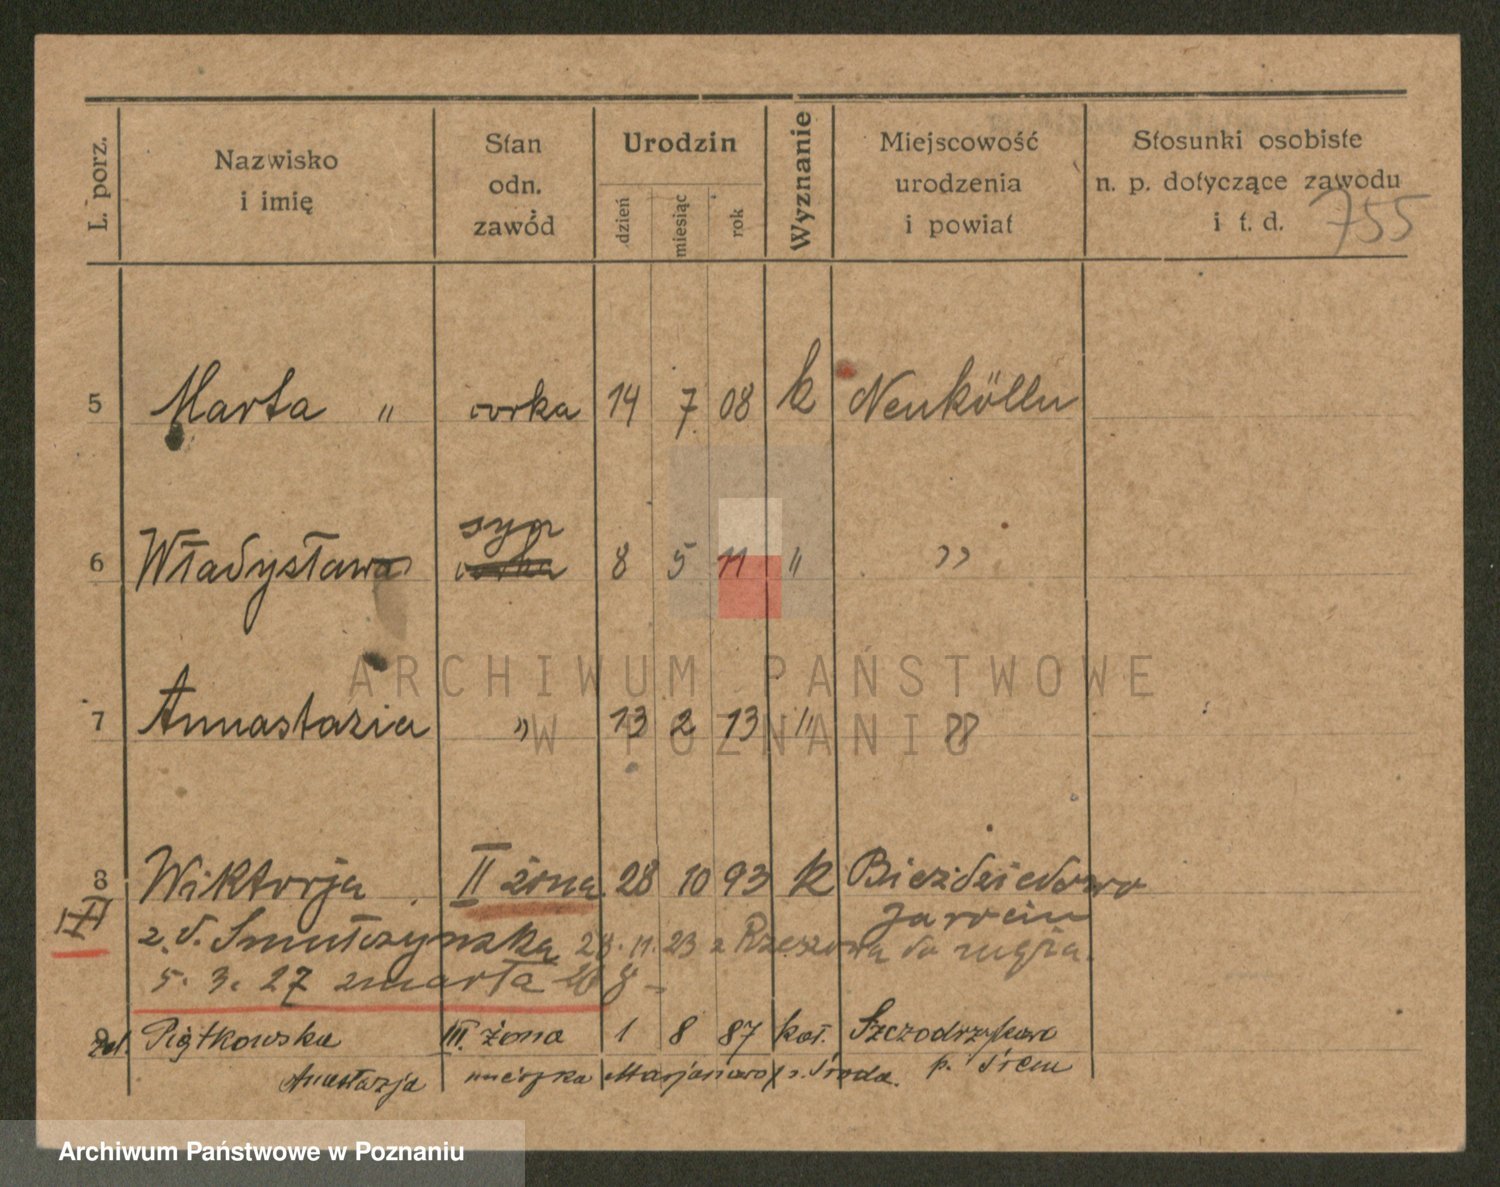 L. porz.
Nazwisko
i imię
Stan
odn.
zawód
Urodzin
dzień
miesiąc
rok
Wyznanie
Miejscowość
urodzenia
i powiat
Stosunki osobiste
n. p. dotyczące zawodu
i t. d.
755
5 Marta " corka 14 7 08 k Neukölln
syn
6 Władysława corka 8 5 11 " "
7 Annastazia " 13 2 13 " "
8 Wiktorja II żona 28 10 93 k Biezdziedowo
Jarocin
z. d. Smułczynska 28. 11. 23 z Rzeszowa do
5. 3. 27 zmarła
9 Piątkowska III. żona 1 8 87 kat. Szczodrzykowo
Anastazja p. Śrem
ARCHIWUM PAŃSTWOWE
W POZNANIU
Archiwum Państwowe w Poznaniu